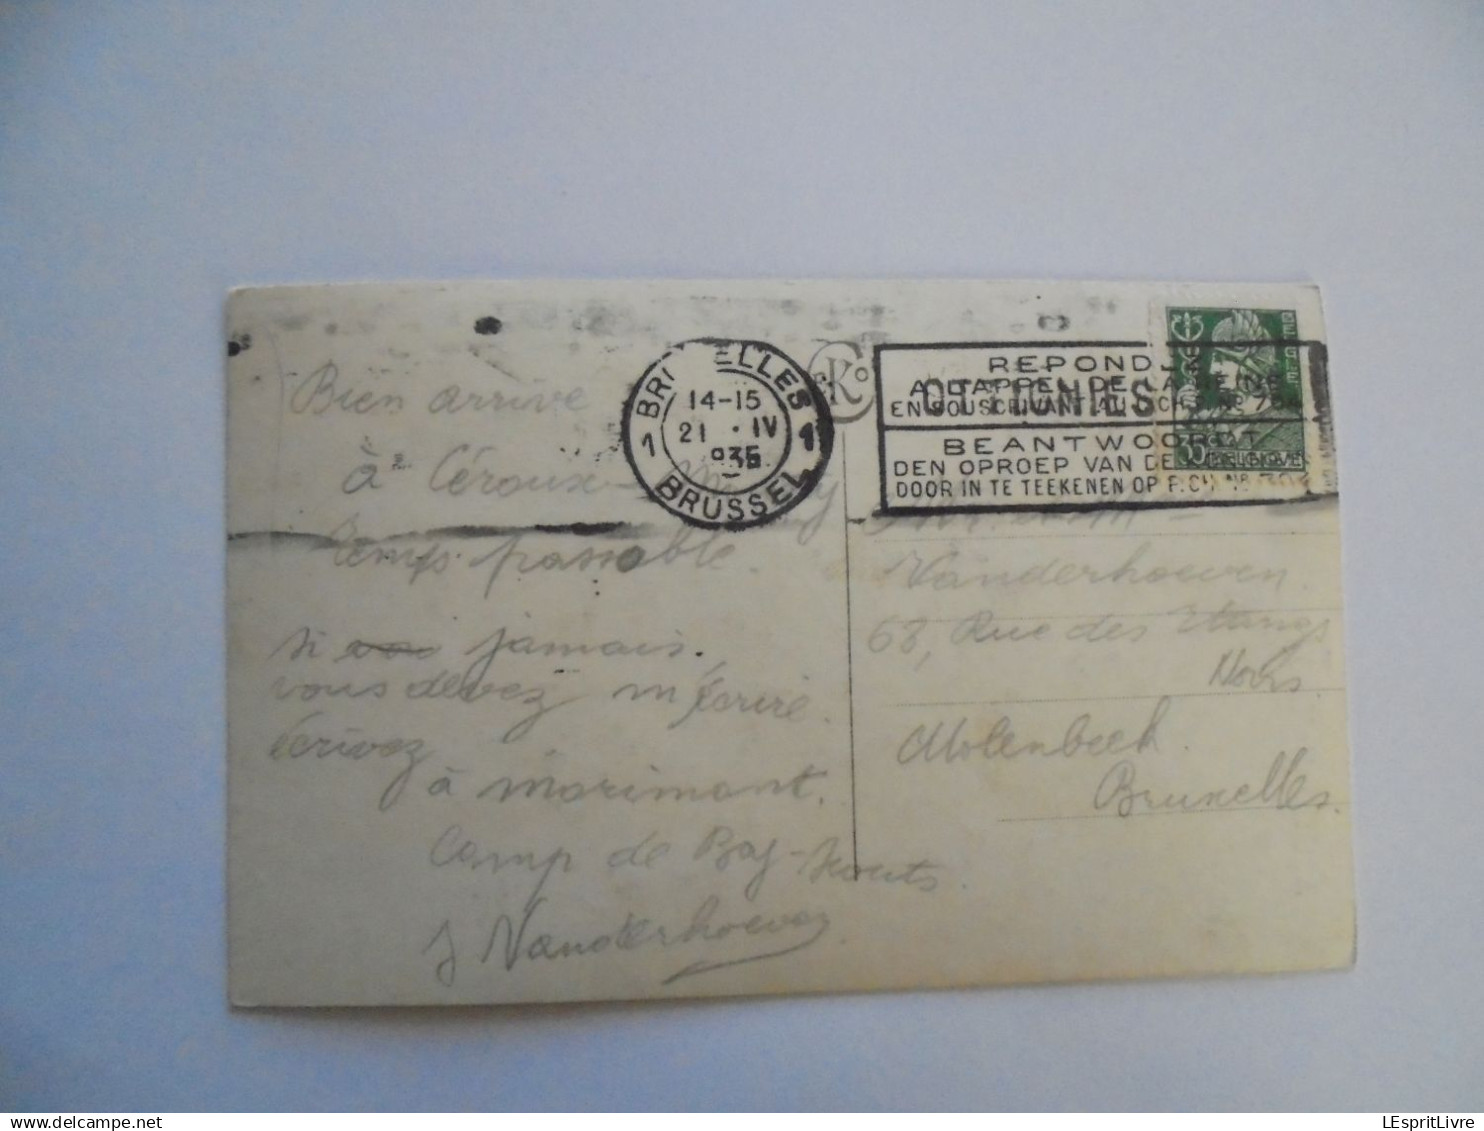 Bien arrivé
à Céroux-
Temps passable.
si vous jamais.
vous devez m'écrire.
écrivez
à Morimont.
Camp de Boy-Scouts.
J Vanderhoeven
BRUXELLES
14-15
21 · IV
1935
BRUSSEL
1
1
REPONDEZ
A L'APPEL DE LA REINE
EN SOUSCRIVANT AU
BEANTWOORDT
DEN OPROEP VAN DE
DOOR IN TE TEEKENEN OP
35
BELGIQUE
Vanderhoeven.
68, Rue des Etangs
Noirs.
Molenbeek.
Bruxelles.
LEspritLivre